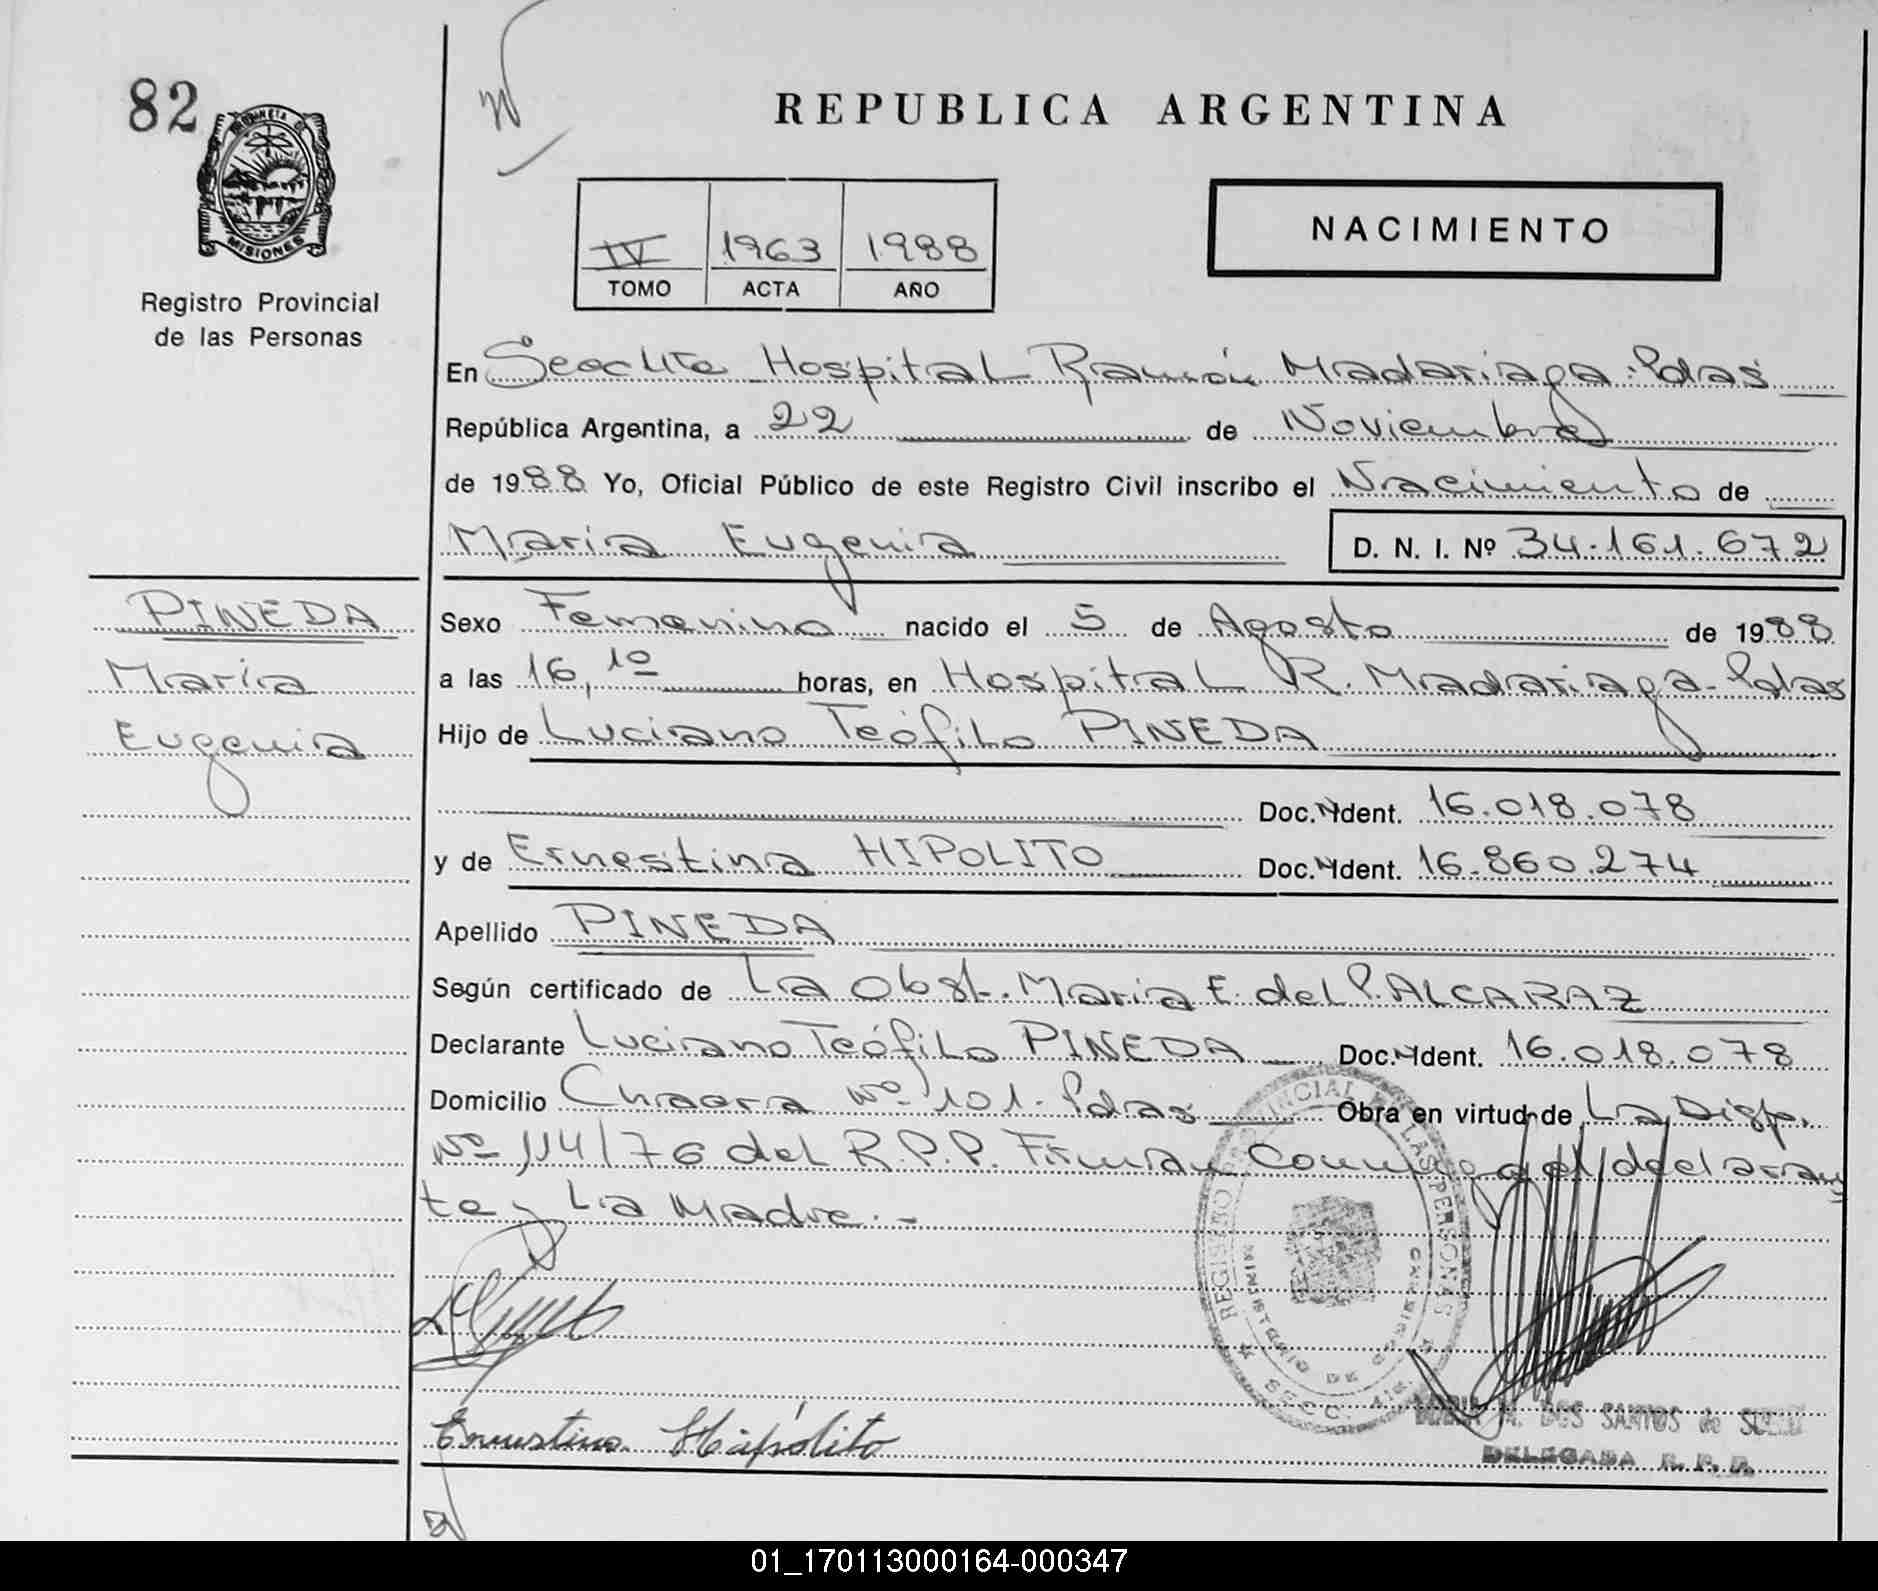 82
PROVINCIA DE
MISIONES
Registro Provincial
de las Personas
REPUBLICA ARGENTINA
NACIMIENTO
IV 1963 1988
TOMO ACTA AÑO
En Hospital Ramón Madariaga. Pdas
República Argentina, a 22 de Noviembre
de 1988 Yo, Oficial Público de este Registro Civil inscribo el Nacimiento de
Maria Eugenia D. N. I. Nº 34.161.672
PINEDA
Maria
Eugenia
Sexo Femenino nacido el 5 de Agosto de 1988
a las 16,10 horas, en Hospital R. Madariaga. Pdas
Hijo de Luciano Teófilo PINEDA
Doc. Ident. 16.018.078
y de Ernestina HIPOLITO Doc. Ident. 16.860.274
Apellido PINEDA
Según certificado de La Obst. Maria E. del P. ALCARAZ
Declarante Luciano Teófilo PINEDA Doc. Ident. 16.018.078
Domicilio Chacra Nº 101. Pdas Obra en virtud de La Disp.
Nº 114/76 del R.P.P. Firman Conmigo el declaran
te y La Madre.-
REGISTRO PROVINCIAL DE LAS PERSONAS
MINISTERIO DE
Ernestina Hipólito
M. DOS SANTOS de
DELEGADA R. P. P.
01_170113000164-000347